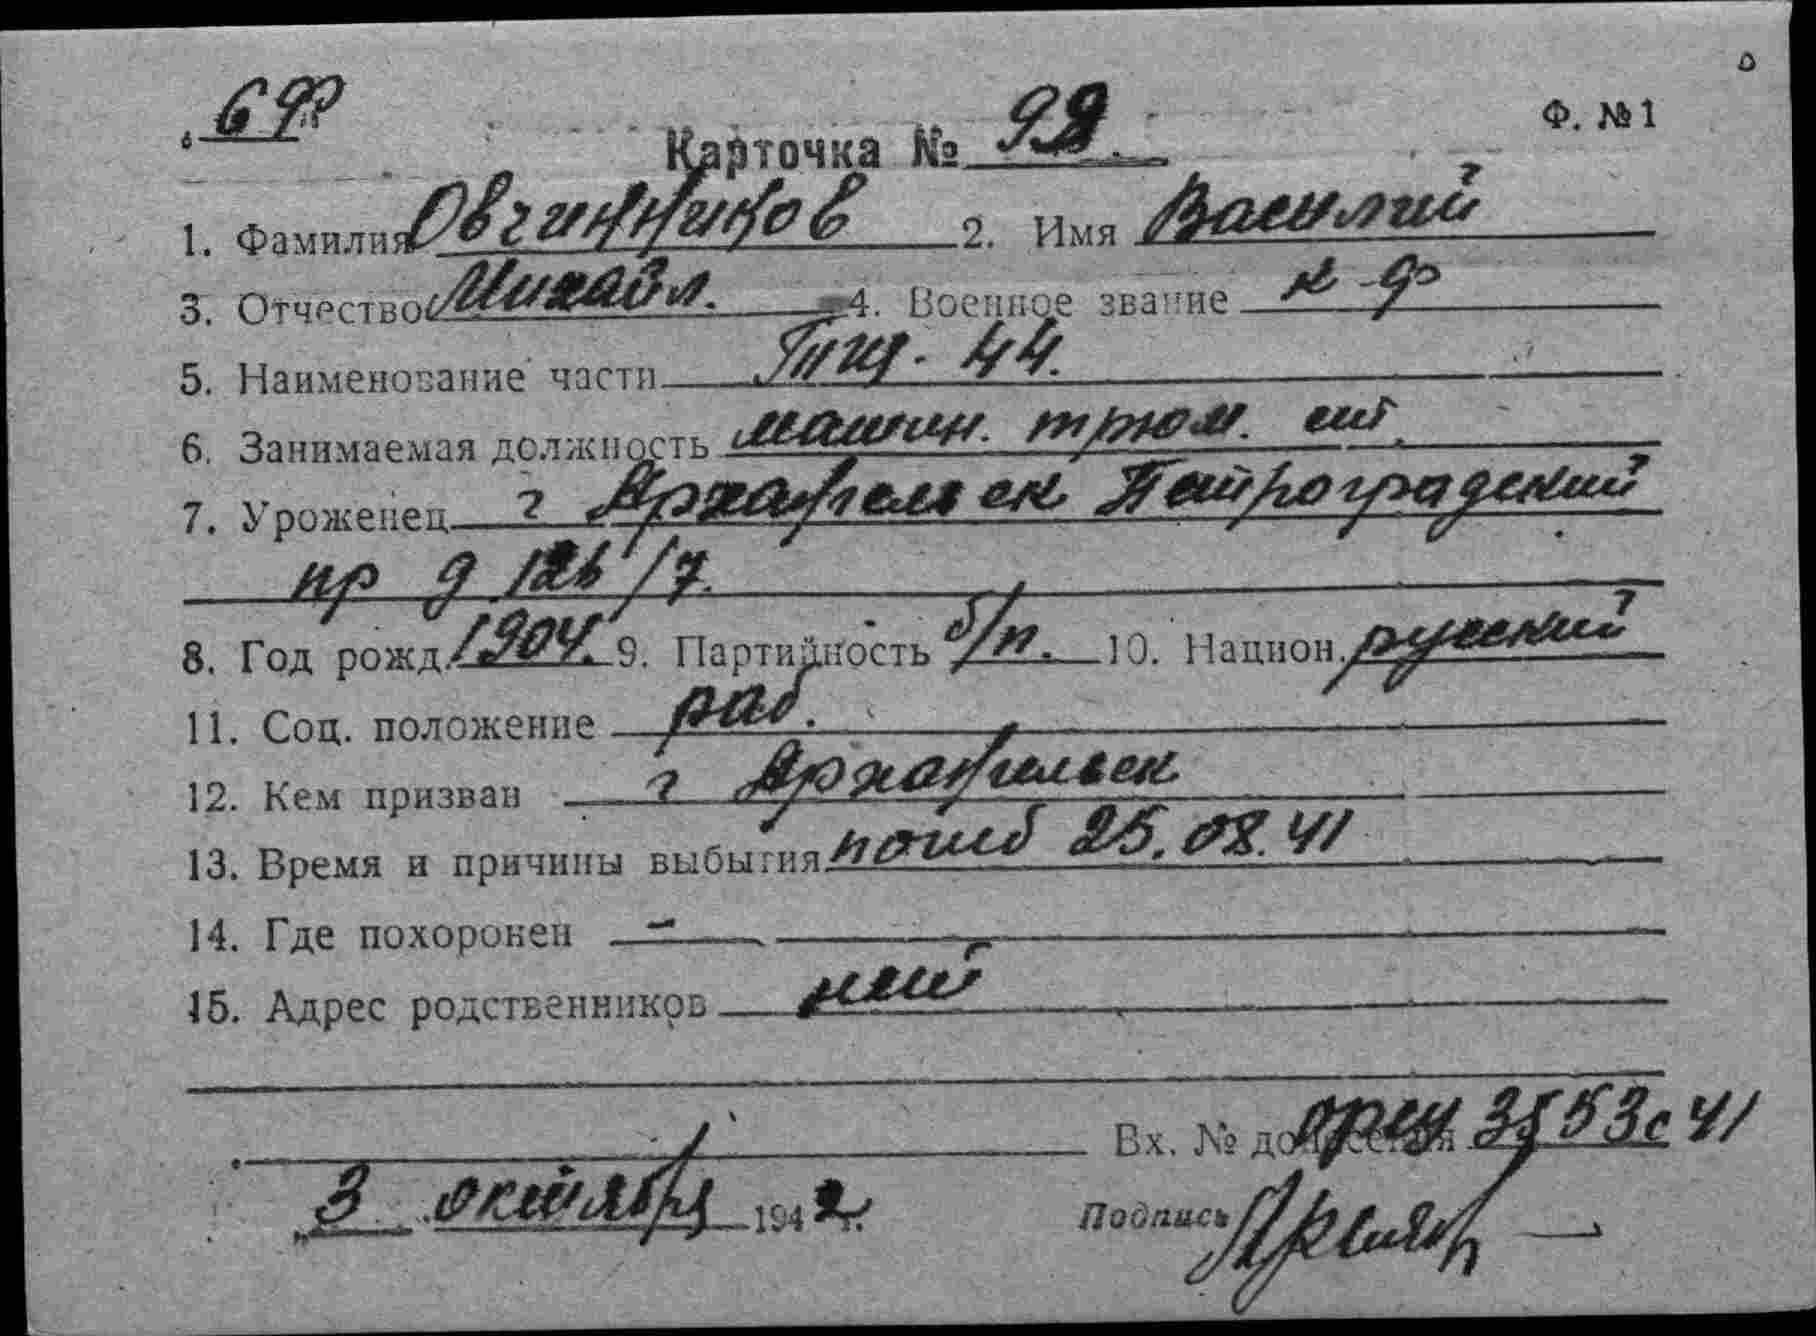 Ф. №1
Карточка № 99
1. Фамилия Овчинников 2. Имя Василий
3. Отчество Михайл. 4. Военное звание к-ф
5. Наименование части Тщ. 44.
6. Занимаемая должность машин. трюм. ст.
7. Уроженец г Архангельск Петроградский
пр д 126/7.
8. Год рожд. 1904. 9. Партийность б/п. 10. Национ. русский
11. Соц. положение раб.
12. Кем призван г Архангельск
13. Время и причины выбытия погиб 25.08.41
14. Где похоронен –
15. Адрес родственников нет
Вх. № донесения 3553с 41
3 октября 1942 г.
Подпись